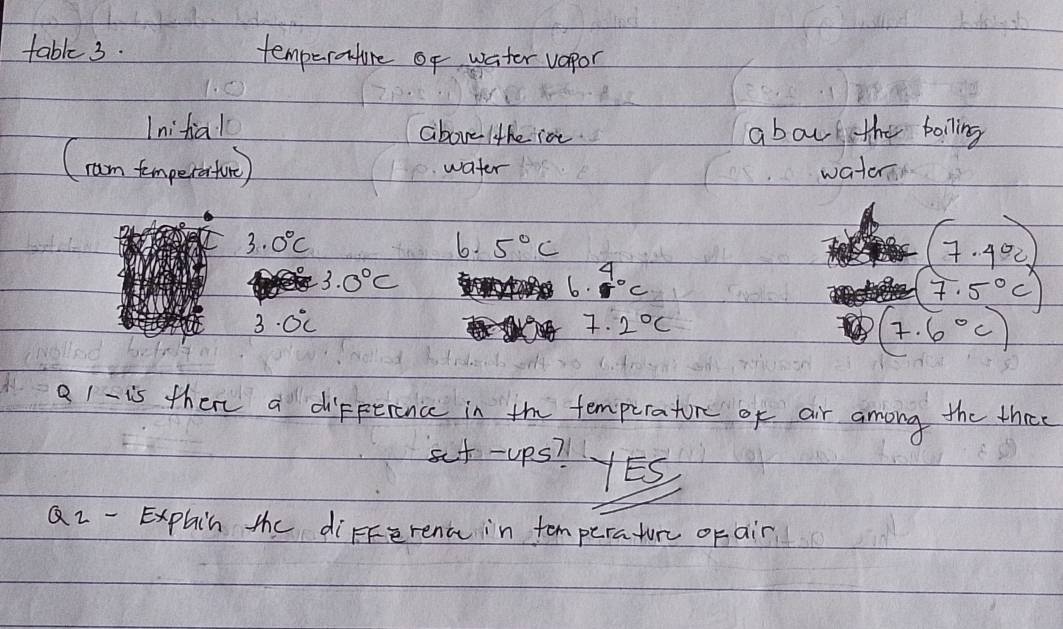 table 3. temperature of water vapor
Initial above the ice abov the boiling
(room temperature) water water
3.0°C 6.5°C (7.4°C)
3.0°C 6.4°C (7.5°C)
3.0°C 7.2°C (7.6°C)
Q1 - is there a difference in the temperature of air among the three
set-ups? YES
Q2 - Explain the difference in temperature of air.